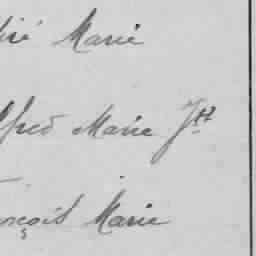 iré Marie
lfred Marie Jh
nçois Marie